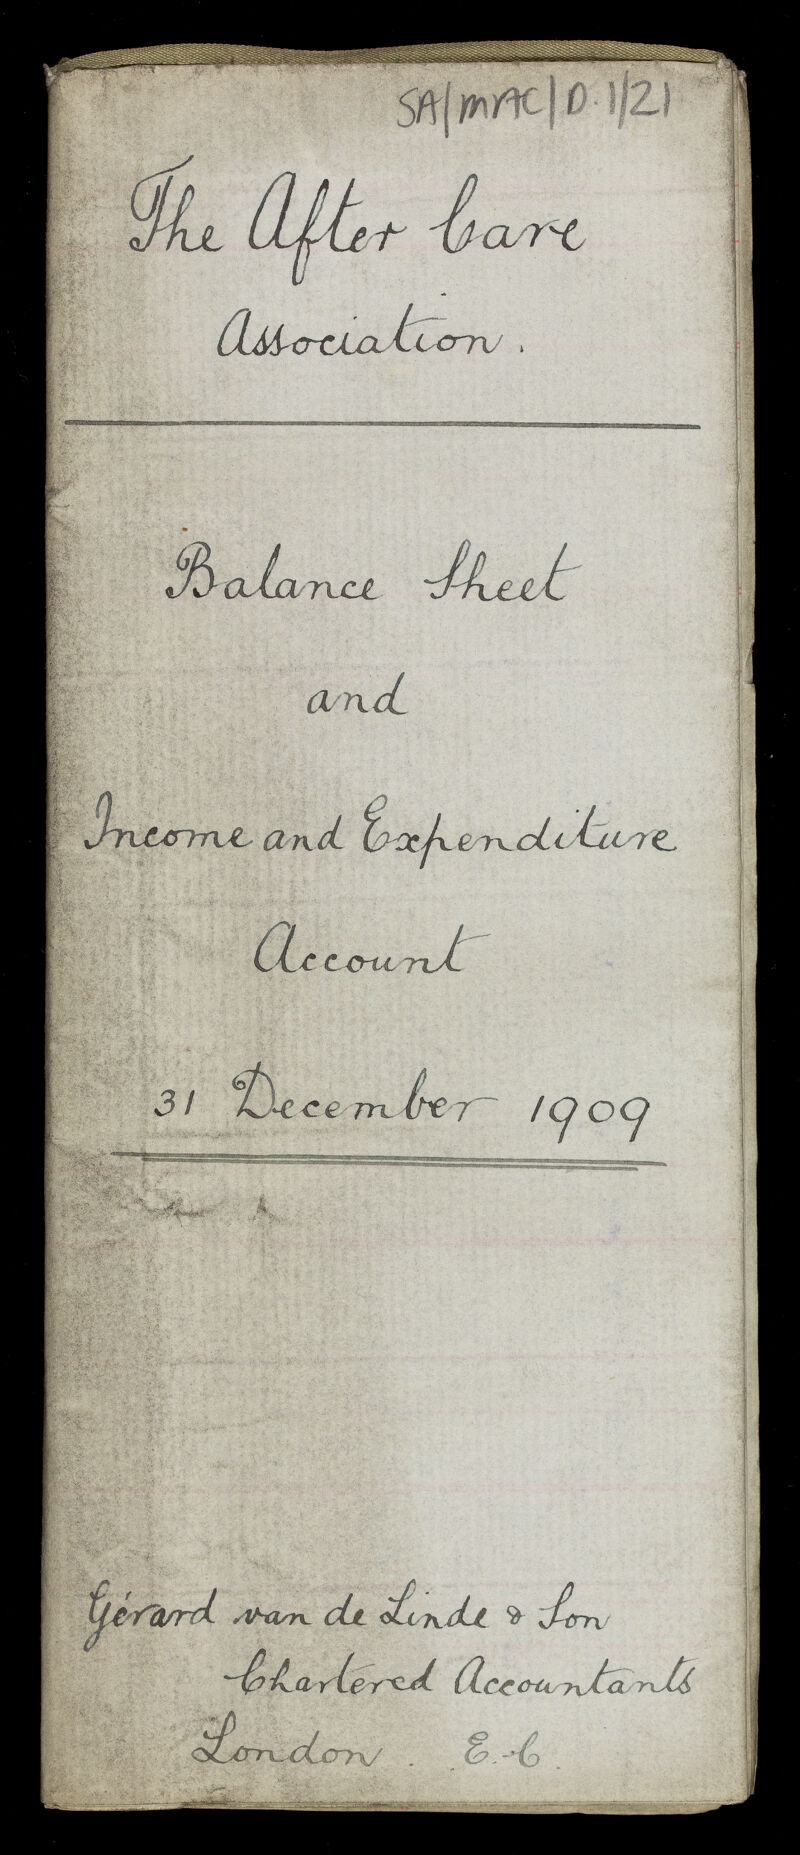 SA/MAC/D.1/21
The After Care
Association.
Balance Sheet
and
Income and Expenditure
Account
31 December 1909
Gérard van de Linde & Son
Chartered Accountants
London. E.C.